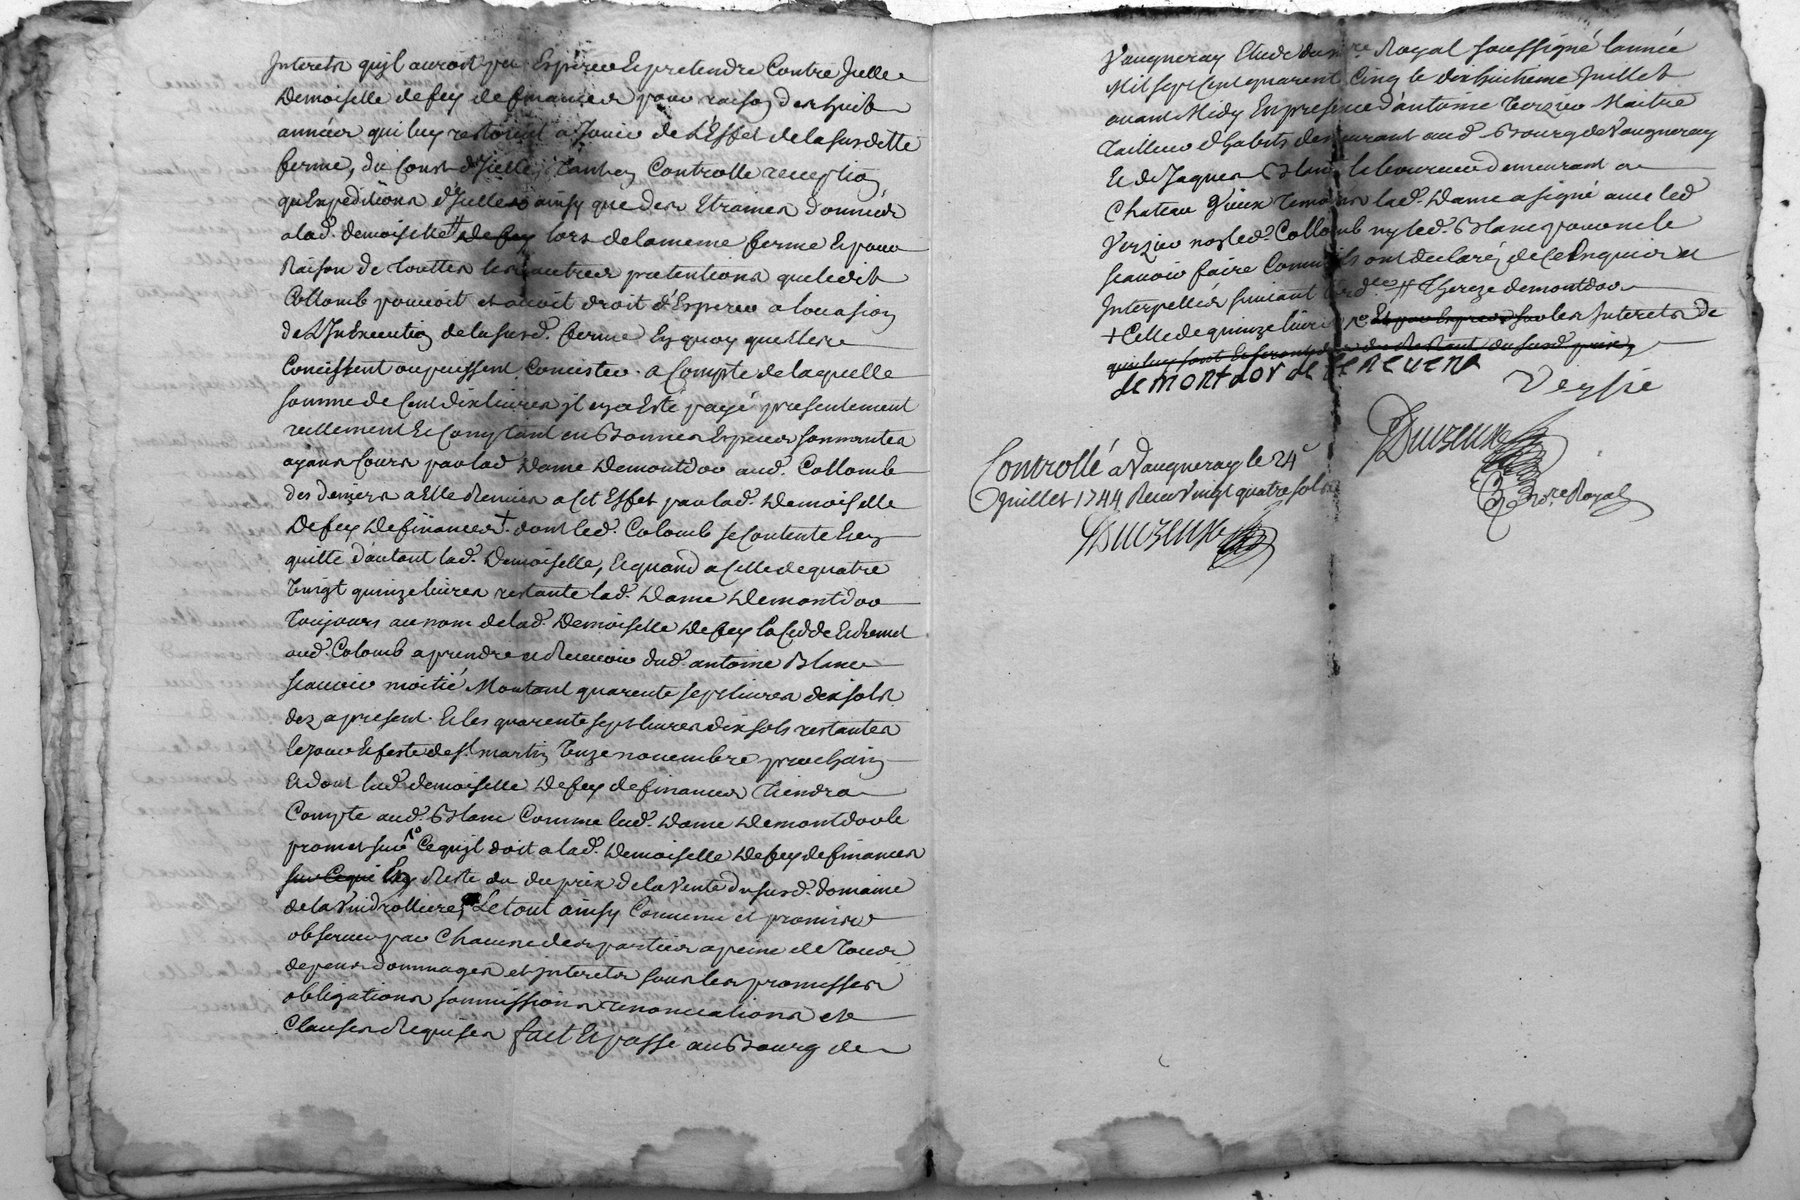 Interets qu'jl auroit pu Esperer Et pretendre Contre Jcelle
Demoiselle defey de finances pour raison des huit
années qui luy restoient a Jouir de L'Effet de la susditte
ferme, du Cours d'Jcelle, Controlle reception
qu'Expeditions d'Jcelle ainsy que des Etraines données
a lad. demoiselle Defey lors de la meme ferme Et pour
Raison de touttes les autres pretentions que ledit
Collomb pouvoit et avoit droit d'Esperer a loccasion
de L'Inexecution de la susd. ferme En quoy quelles
Concistent ou puissent Concister. a Compte de laquelle
somme de Cent dix livres jl en a Esté payé presentement
reellement Et Comptant en Bonnes Especes sonnantes
ayans Cours par lad. Dame Demontdor aud. Collomb
des deniers a Elle Remis a Cet Effet par lad. Demoiselle
Defey Definances + dont led. Colomb se Contente Et en
quitte d'autant lad. Demoiselle, Et quand a Celle de quatre
vingt quinze livres restante lad. Dame Demontdor
Toujours au nom de lad. Demoiselle Defey la Cedde Et Remet
aud. Colomb a prendre et Recevoir dud. antoine Blanc
scavoir moitié Montant quarente sept livres dix sols
dez a present. Et les quarente sept livres dix sols restantes
le jour Et feste de st. martin Onze novembre prochain
Et dont lad. demoiselle Defey de finances Tiendra
Compte aud. Blanc Comme lad. Dame Demontdor le
promet sur Ce qu'jl doit a lad. Demoiselle Defey de finances
sur Ce qui Reste du du prix de la Vente du susd. domaine
de la Vuidrolliere, Le tout ainsy Convenu et promis
observer par Chacune des parties a peine de Tous
depens dommages et jnterets sous les promesses
obligations soumissions renonciations et
Clauses Requises fait Et passé au Bourg de
Vaugneray Etude du nre Royal soussigné lannée
Mil sept Cent quarent Cinq le dix huitieme Juillet
avant Midy En presence d'antoine Verzier Maitre
Tailleur d'habits demeurant aud. Bourg de Vaugneray
Et de Jaques Blanc laboureur demeurant a
Chateau Vieux Temoins lad. Dame a signé avec led.
Verzier non led. Collomb ny led. Blanc pour ne le
scavoir faire Comme jls ont declaré de Ce Enquis et
Interpellés suivant lord.ce // Thereze demontdor
+ Celle de quinze livres Et pour Exprès sur les Interets de
qui luy sont Et seront du Restant du susd. prix
demontdor de
Versie
Controllé a Vaugneray le 24e
Juillet 1744 Receu Vingt quatre sols
nre Royal